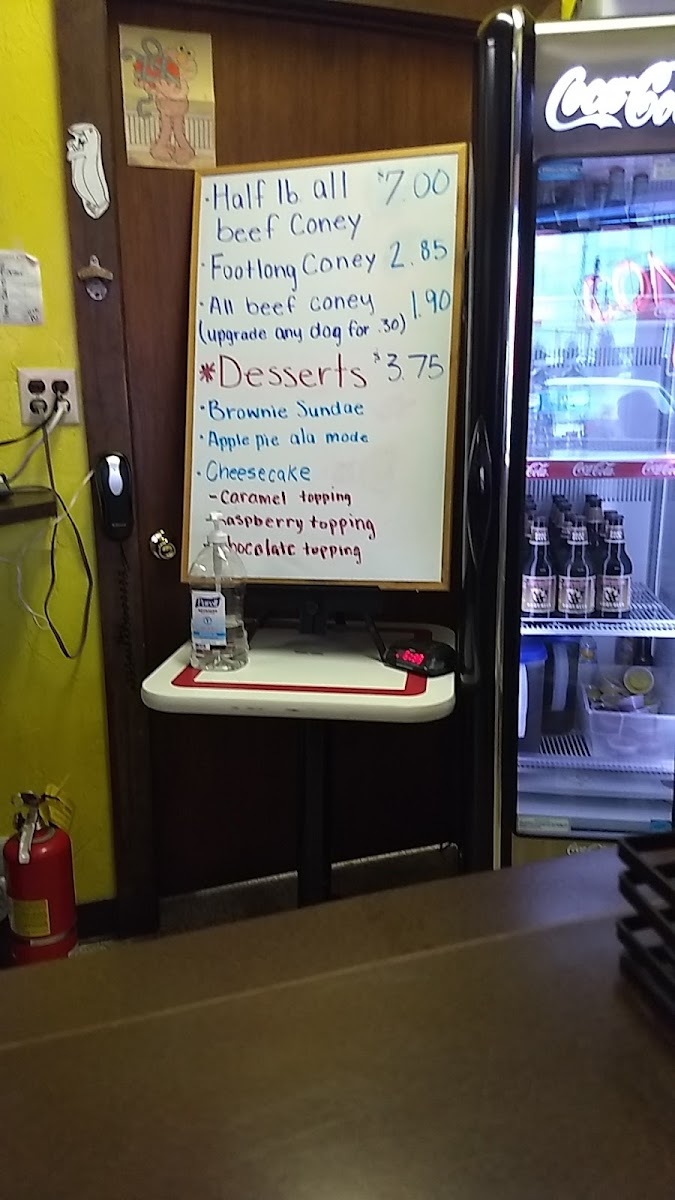 · Half lb all $7.00
beef Coney
· Footlong Coney 2.85
· All beef coney 1.90
(upgrade any dog for .30)
*Desserts $3.75
· Brownie Sundae
· Apple pie ala mode
· Cheesecake
- Caramel topping
raspberry topping
chocolate topping
Purell
Coca-Cola
Coca-Cola
Coca-Cola
CON